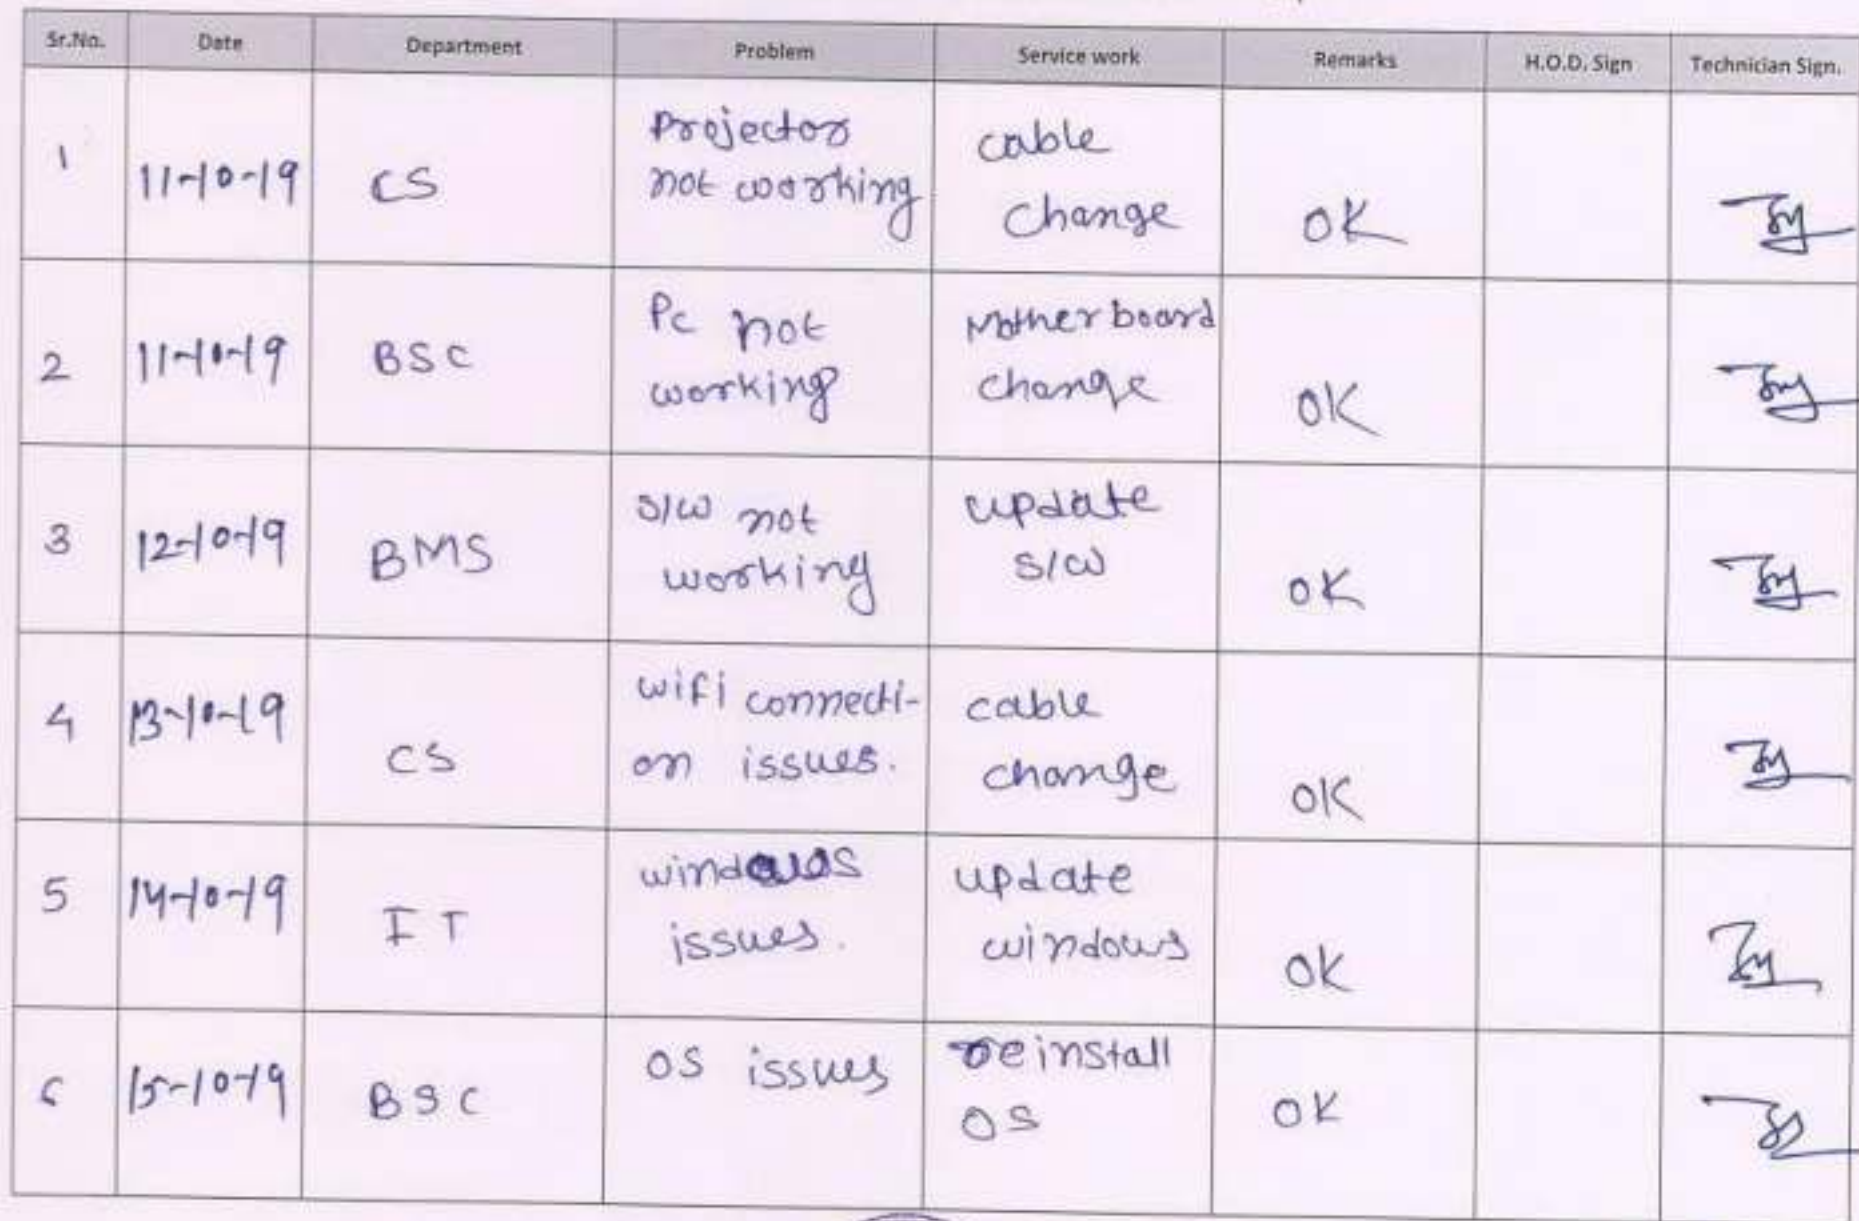 Sr.No. Date Department Problem Service work Remarks H.O.D. Sign Technician Sign.
1 11-10-19 CS Projector not working cable change OK
2 11-10-19 BSC Pc not working Motherboard change OK
3 12-10-19 BMS S/W not working update S/W OK
4 13-10-19 CS wifi connecti-on issues. cable change OK
5 14-10-19 IT windows issues. update windows OK
6 15-10-19 BSC OS issues reinstall OS OK